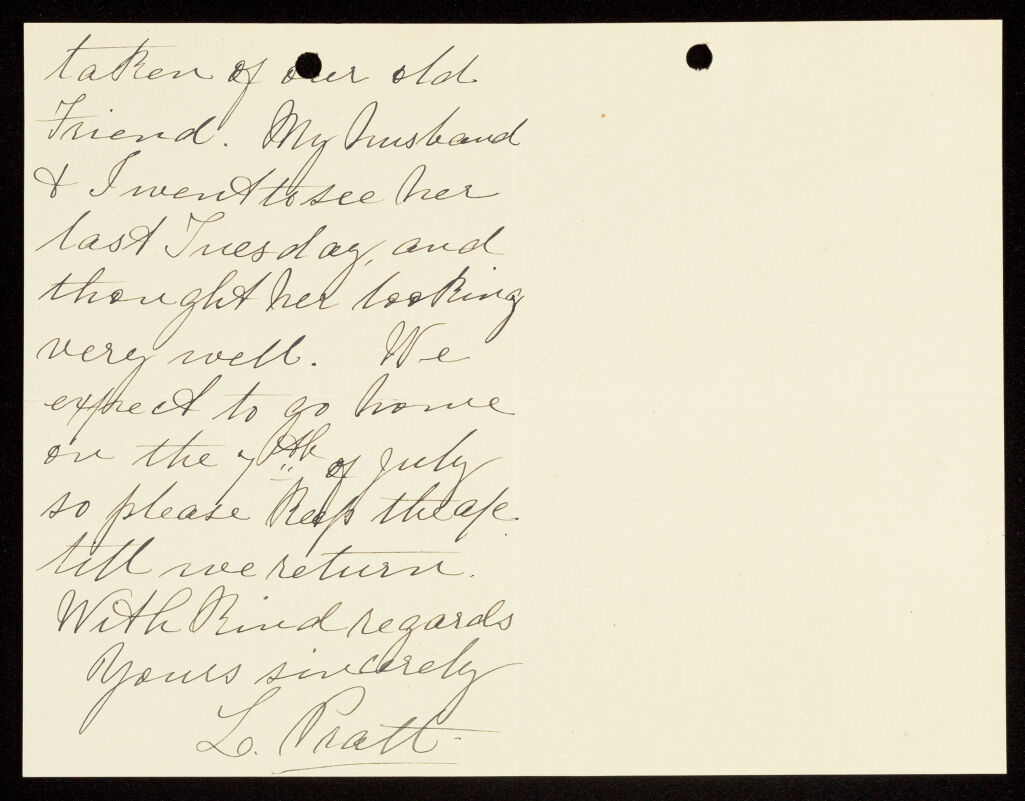 taken of our old
Friend. My husband
& I went to see her
last Tuesday, and
thought her looking
very well. We
expect to go home
on the 7th of July
so please keep the
till we return.
With kind regards
Yours sincerely
L. Pratt.